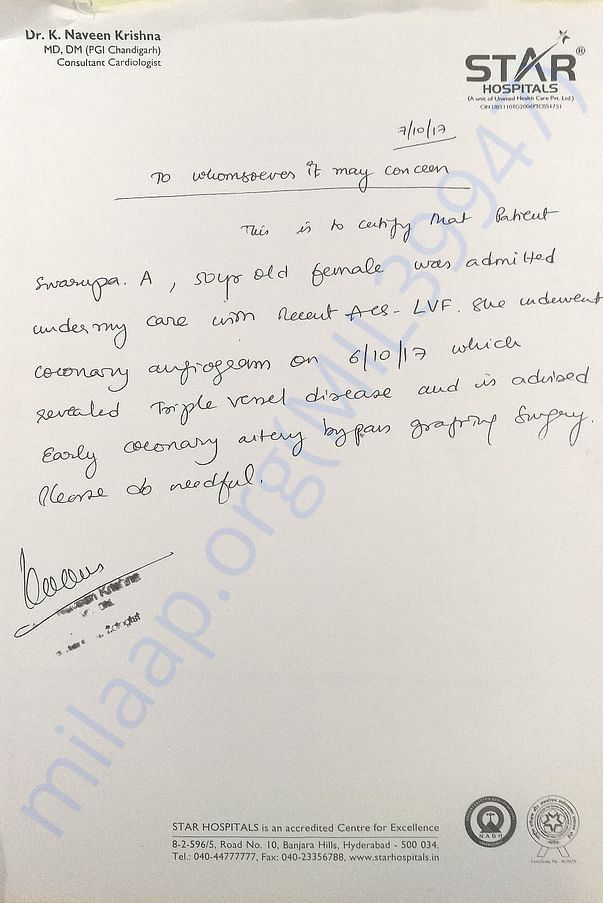 Dr. K. Naveen Krishna
MD, DM (PGI Chandigarh)
Consultant Cardiologist
STAR®
HOSPITALS
(A unit of Unimed Health Care Pvt. Ltd.)
7/10/17
To whomsoever it may concern
This is to certify that Patient
Swarupa. A, 50yr old female was admitted
under my care with Recent ACS-LVF. She underwent
coronary angiogram on 6/10/17 which
revealed Triple vessel disease and is advised
Early coronary artery bypass grafting Surgery.
Please do needful.
Naveen Krishna
STAR HOSPITALS is an accredited Centre for Excellence
8-2-596/5, Road No. 10, Banjara Hills, Hyderabad - 500 034.
Tel.: 040-44777777, Fax: 040-23356788, www.starhospitals.in
NABH
milaap.org(MIL399947)